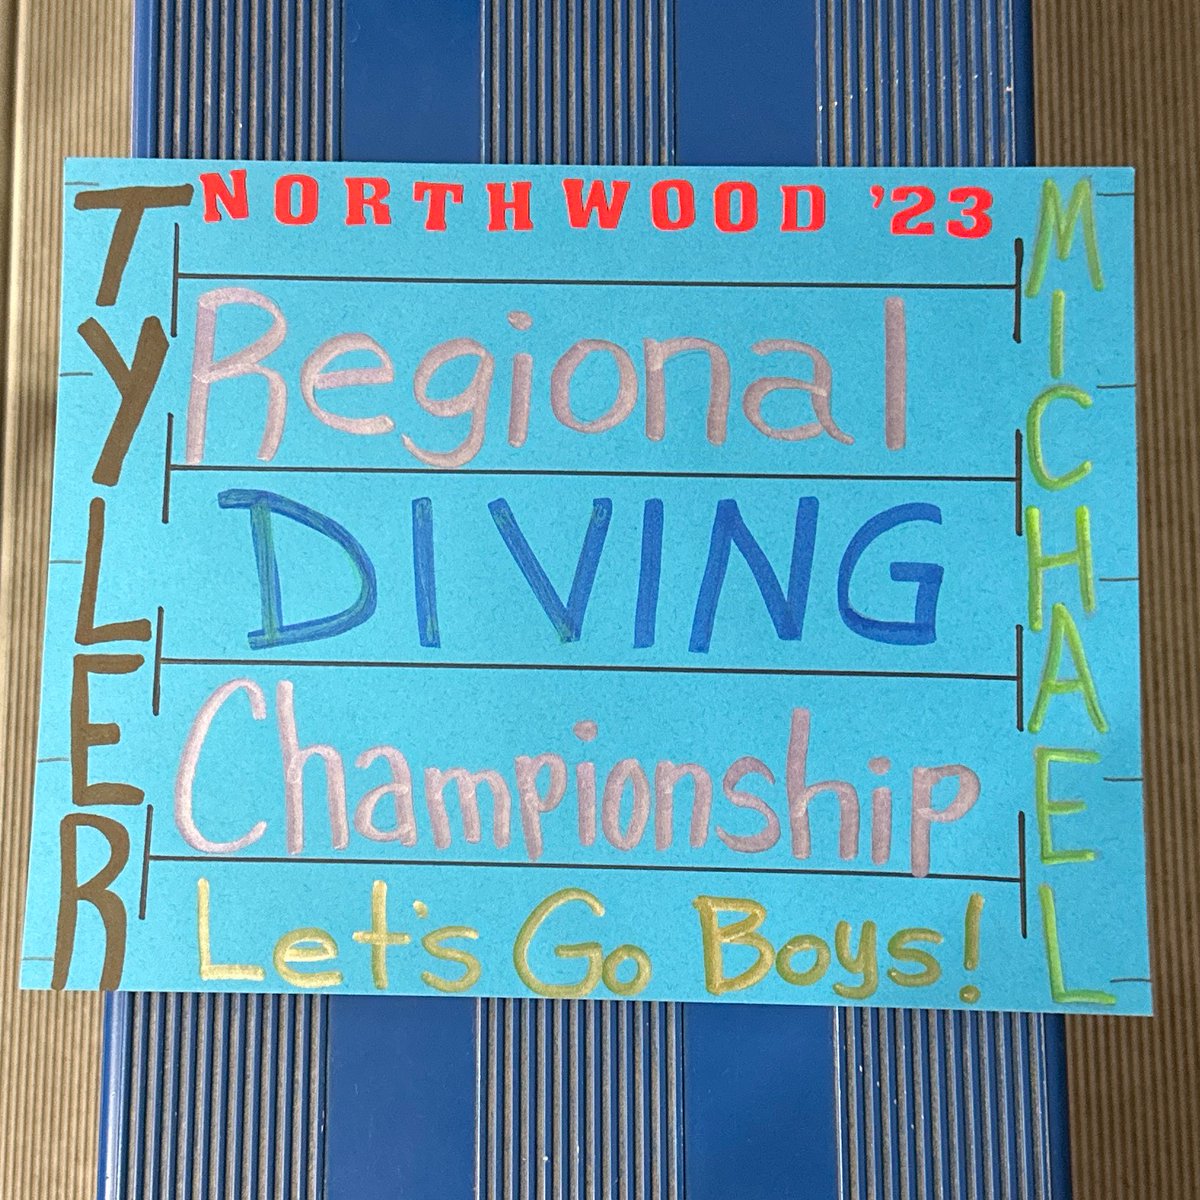 NORTHWOOD '23
TYLER
Regional
DIVING
Championship
Let's Go Boys!
MICHAEL